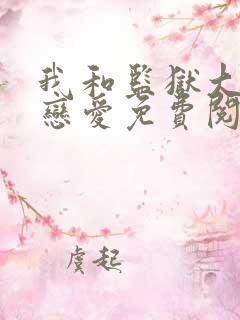 我和監獄大
戀愛免費閱
虞起